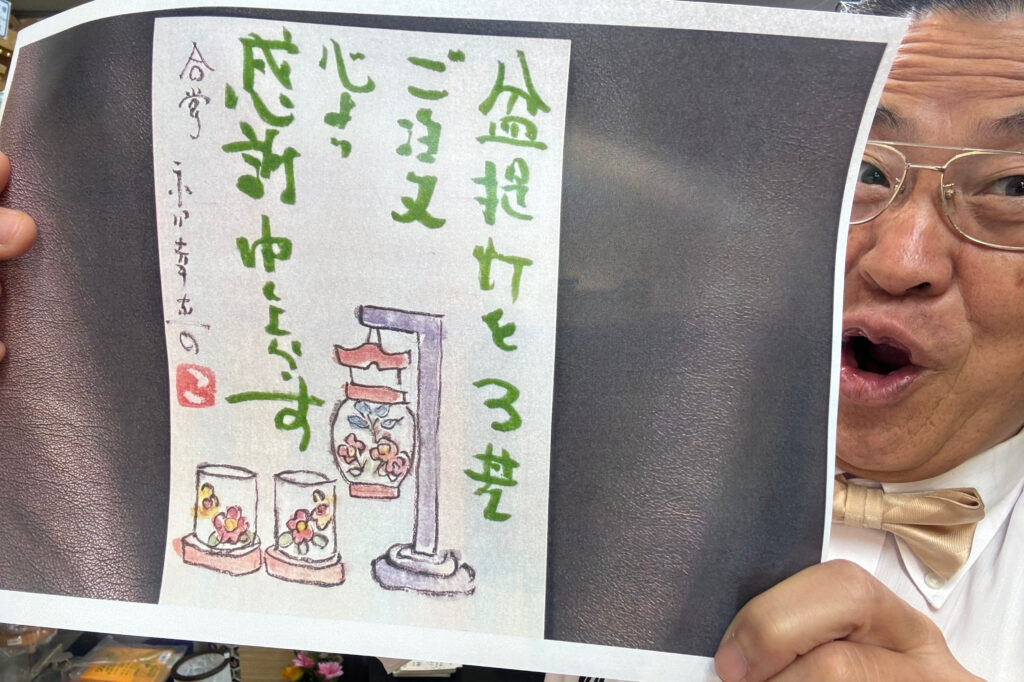 盆提灯を3基
ご注文
心より
感謝申し上げます
合掌